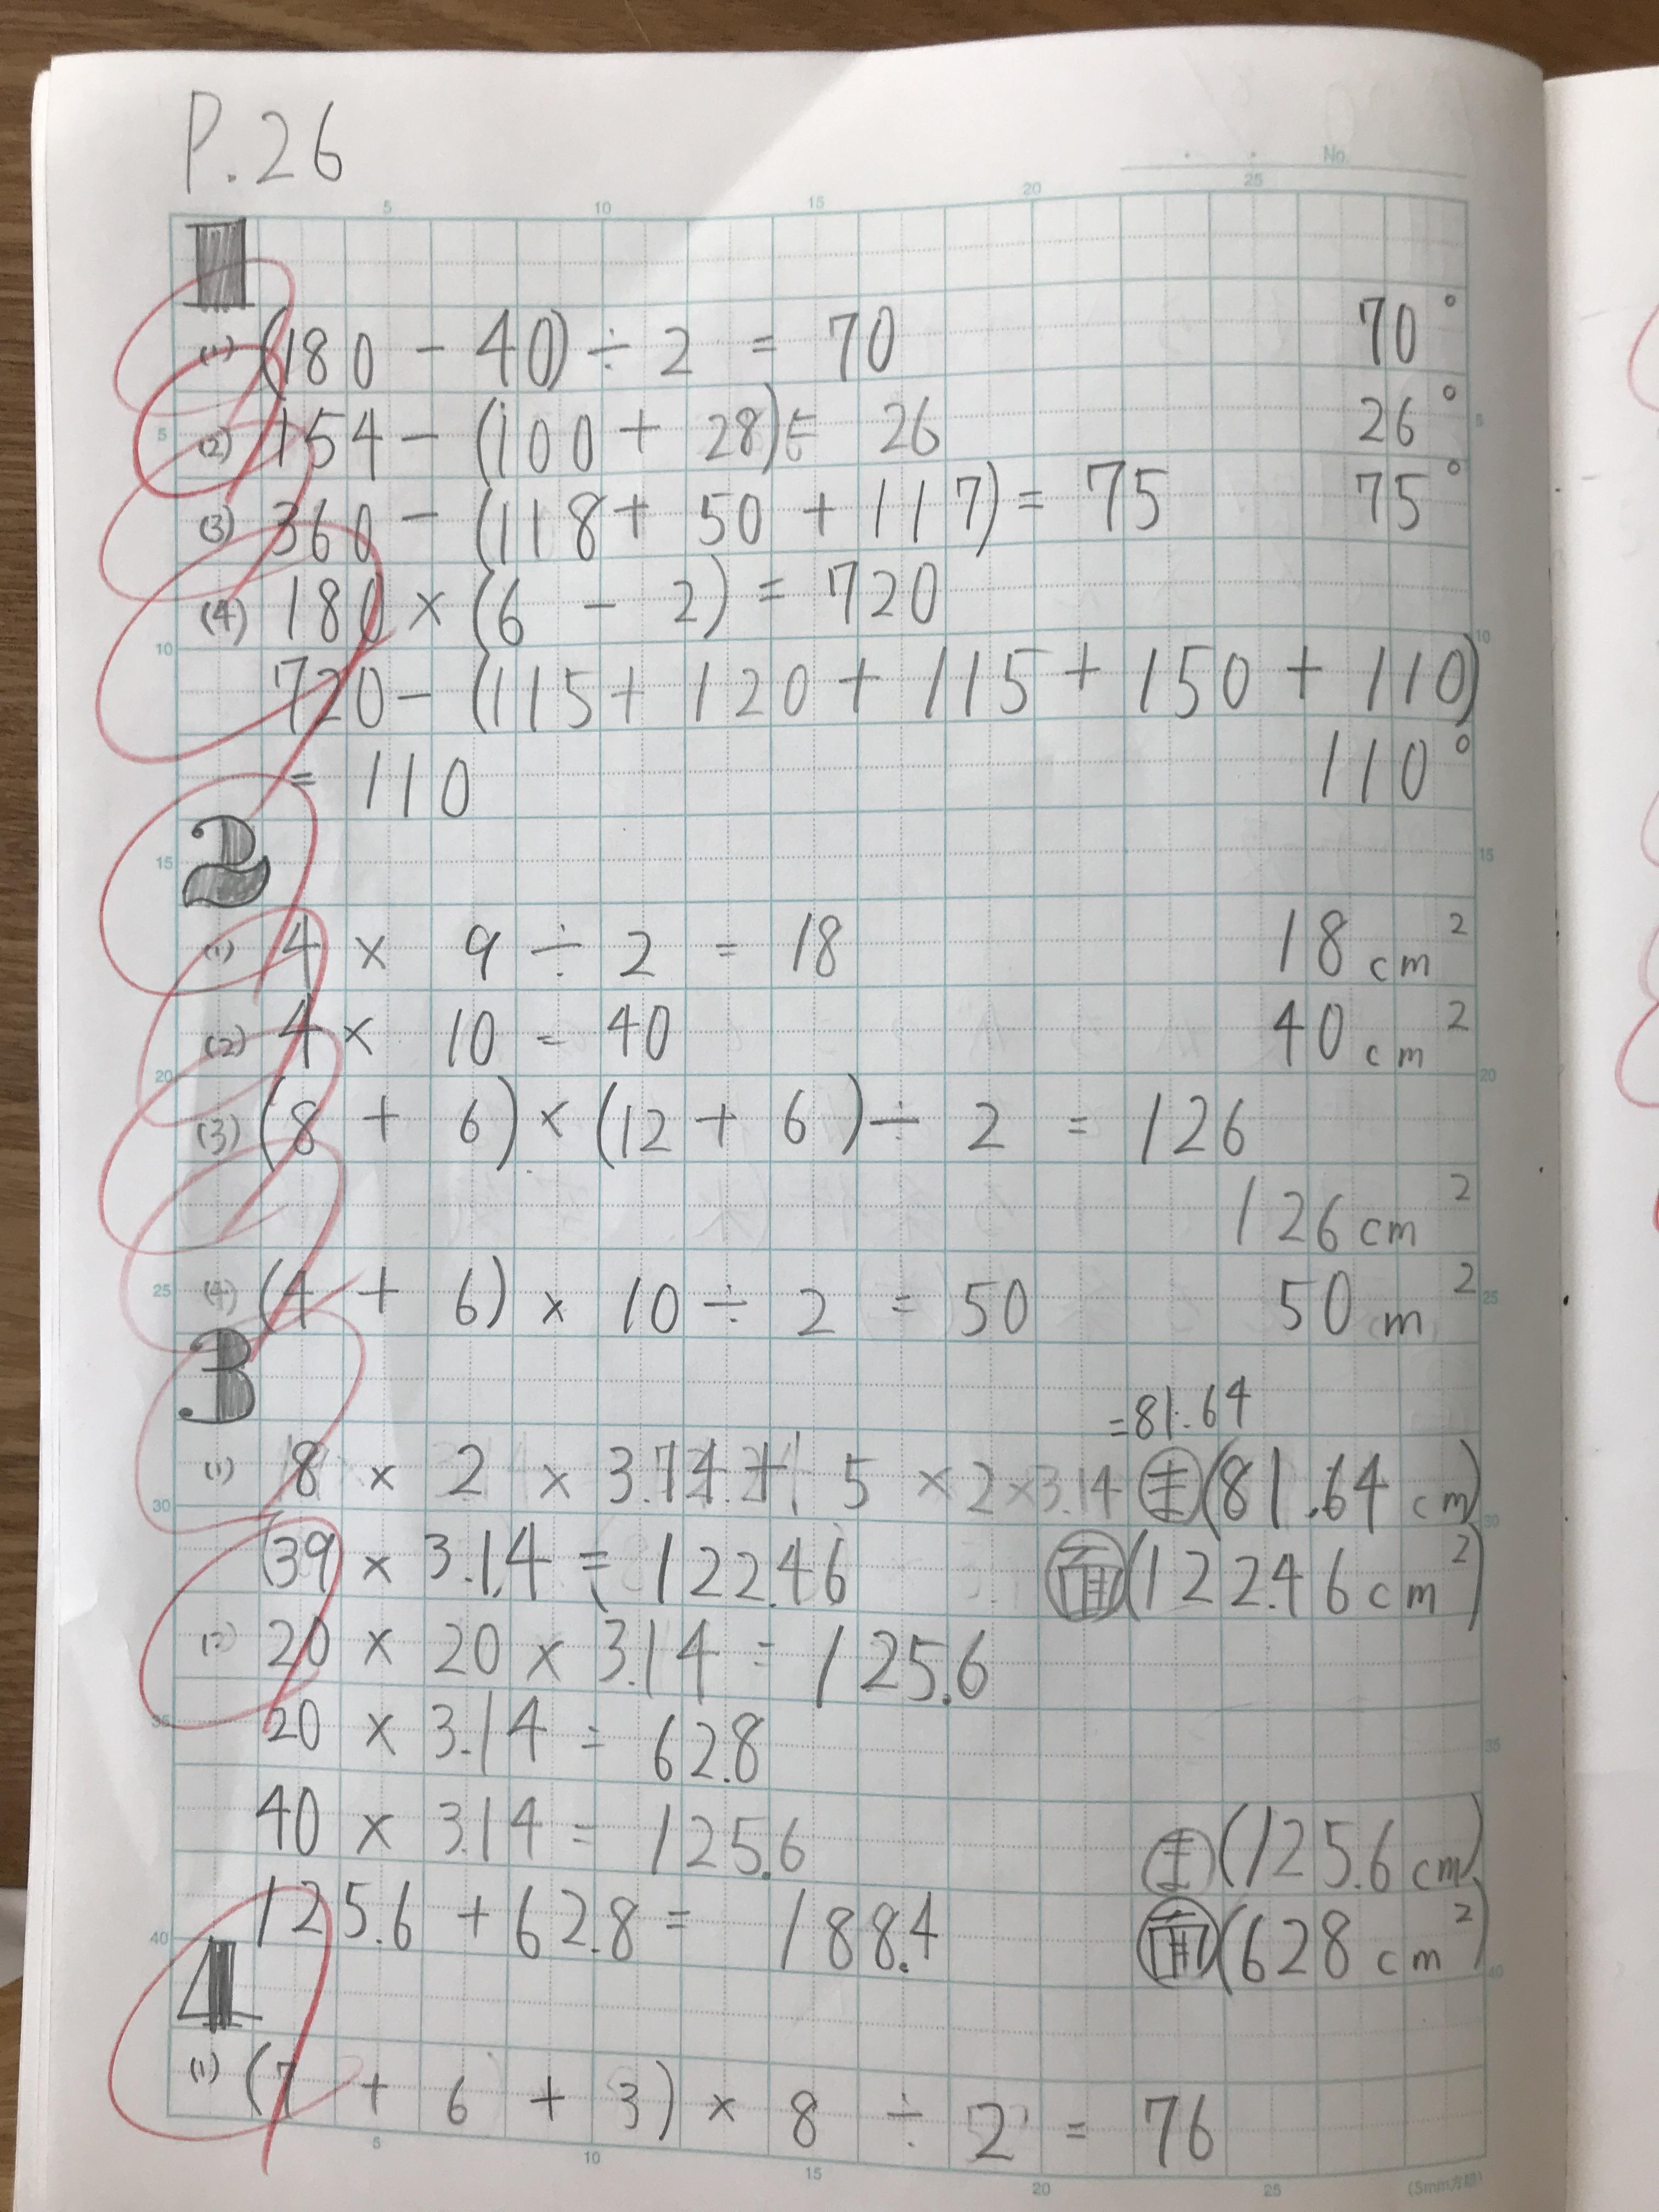 P.26
No.
1
(1) (180 - 40) ÷ 2 = 70 70°
(2) 154 - (100 + 28) = 26 26°
(3) 360 - (118 + 50 + 117) = 75 75°
(4) 180 × (6 - 2) = 720
720 - (115 + 120 + 115 + 150 + 110)
= 110 110°
2
(1) 4 × 9 ÷ 2 = 18 18cm²
(2) 4 × 10 = 40 40cm²
(3) (8 + 6) × (12 + 6) ÷ 2 = 126
126cm²
(4) (4 + 6) × 10 ÷ 2 = 50 50m²
3
=81.64
(1) 8 × 2 × 3.14 + 5 × 2 × 3.14 ま (81.64cm)
39 × 3.14 = 122.46 面 (122.46cm²)
20 × 20 × 3.14 = 125.6
20 × 3.14 = 62.8
40 × 3.14 = 125.6 ま (125.6cm)
125.6 + 62.8 = 188.4 面 (628cm²)
4
(1) (7 + 6 + 3) × 8 ÷ 2 = 76
(5mm方眼)